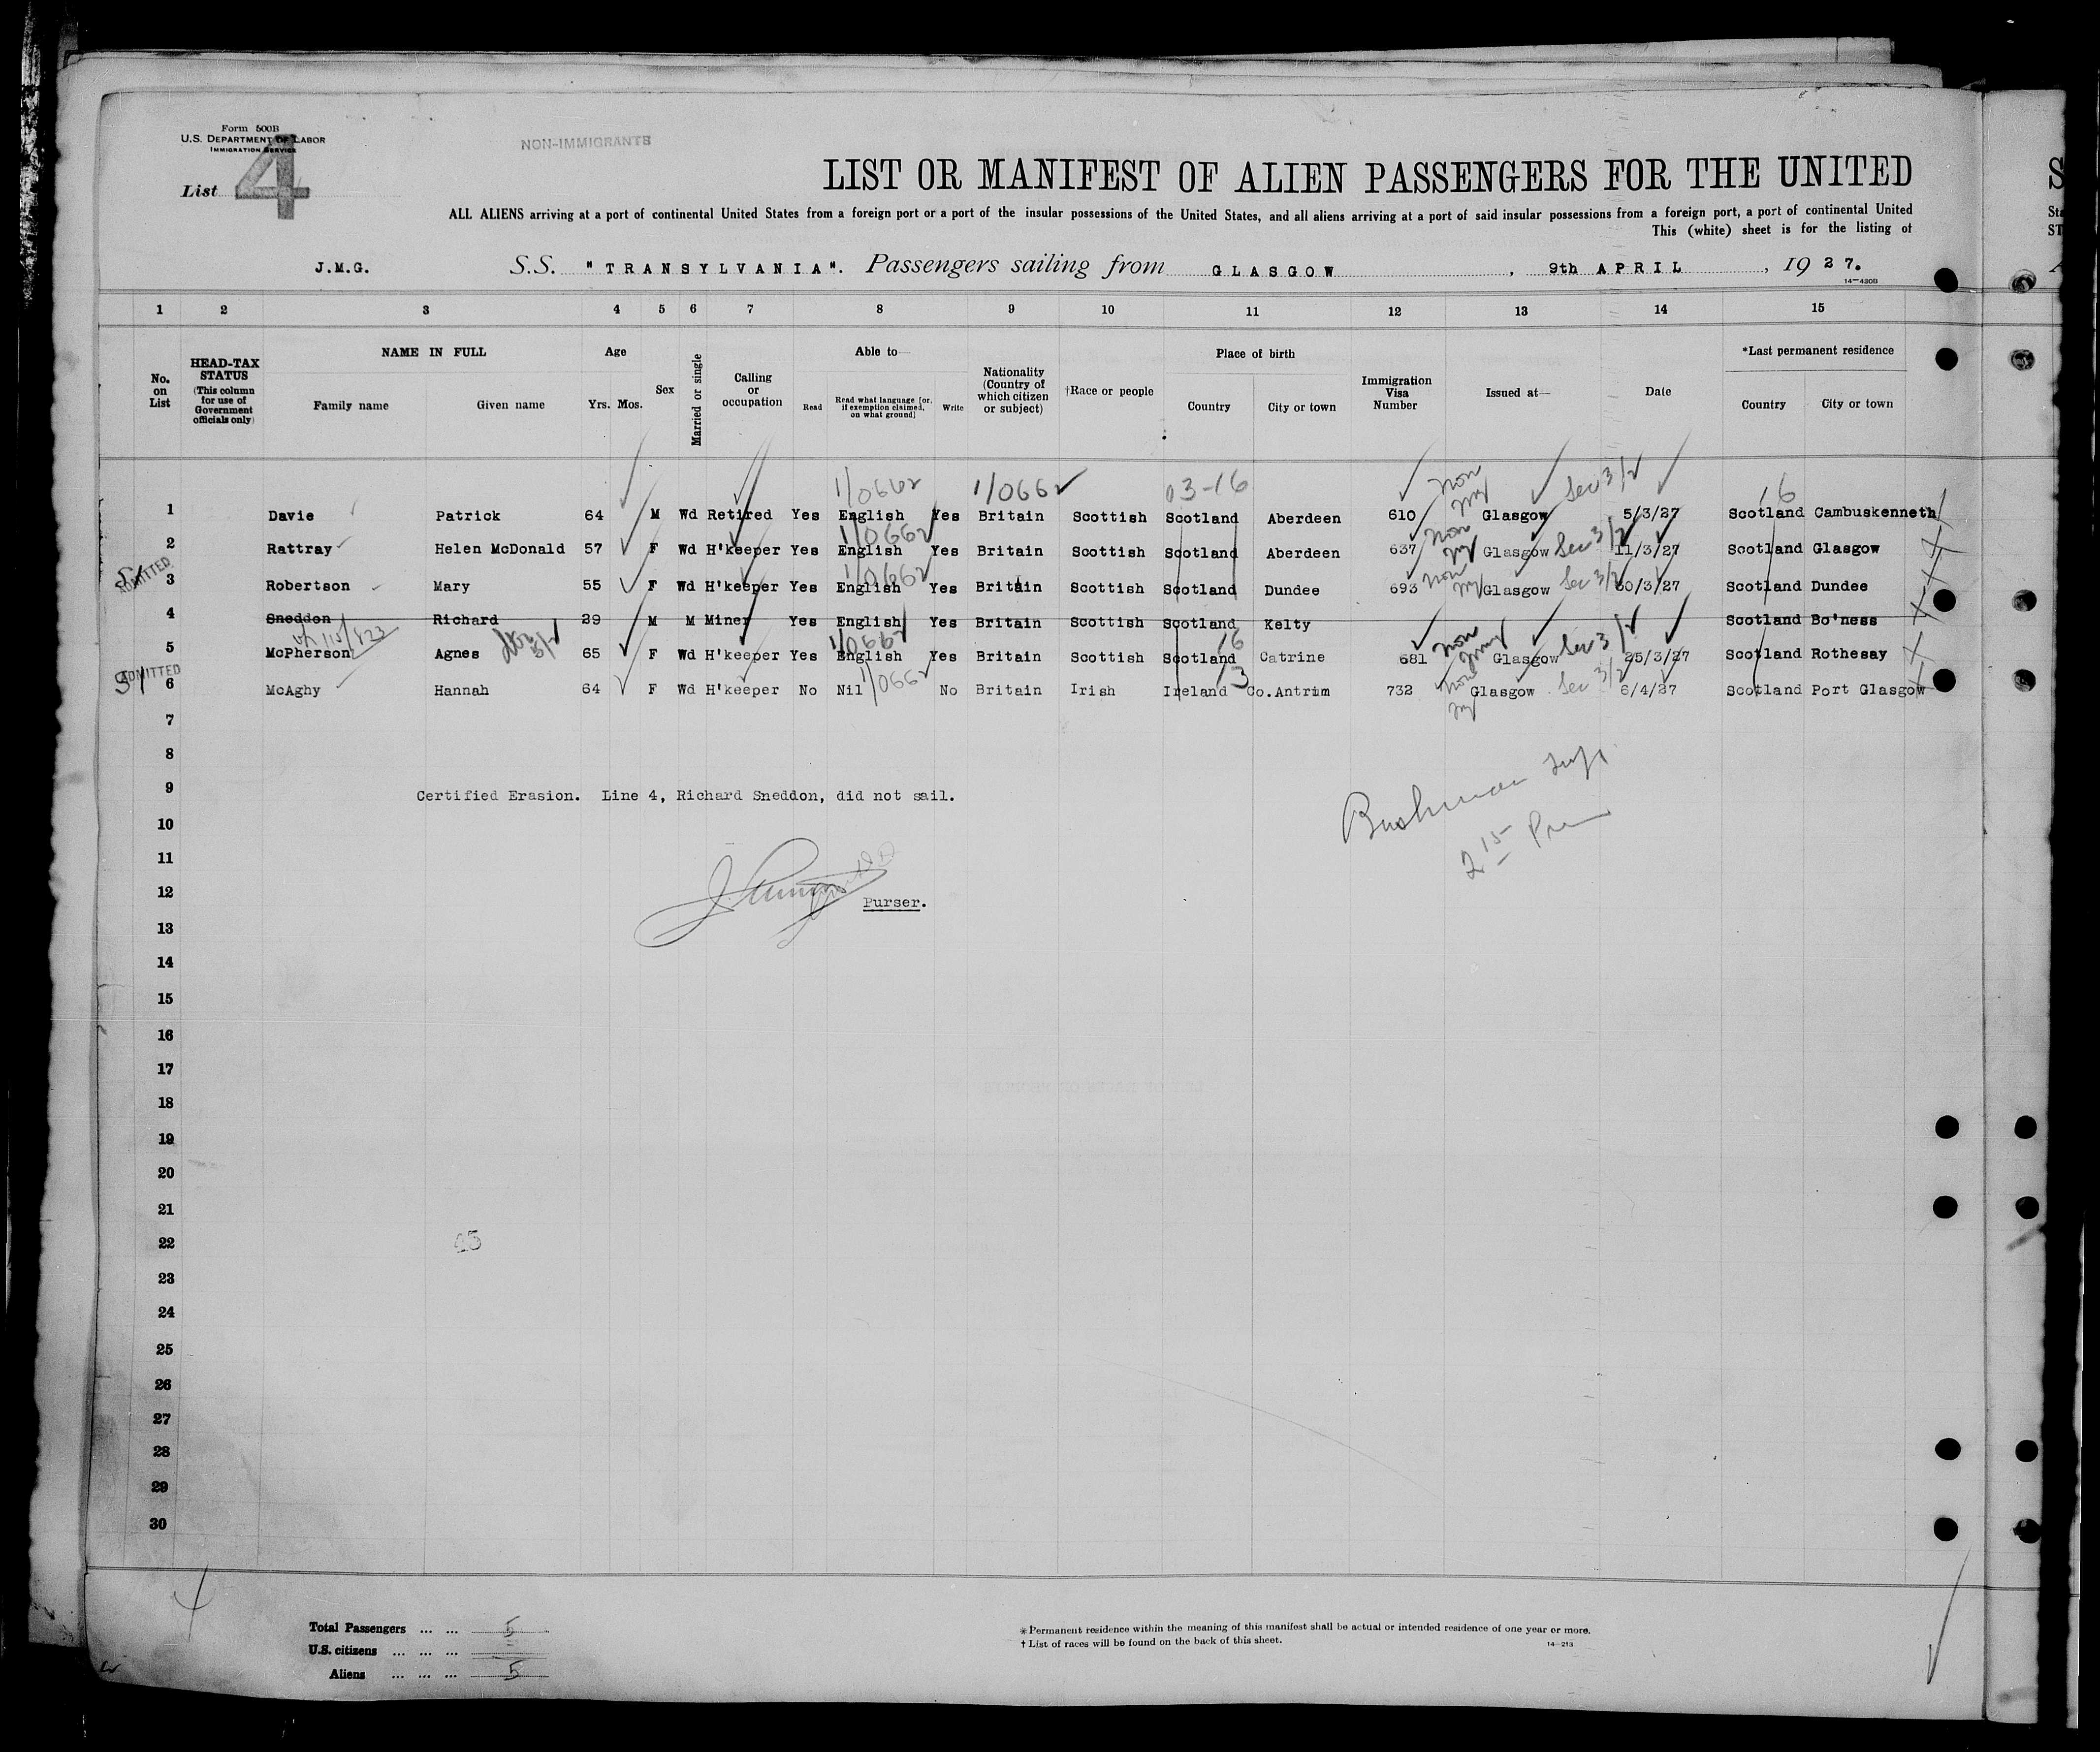 Form 500B
U.S. DEPARTMENT OF LABOR
IMMIGRATION SERVICE
NON-IMMIGRANTS
List 4
LIST OR MANIFEST OF ALIEN PASSENGERS FOR THE UNITED
ALL ALIENS arriving at a port of continental United States from a foreign port or a port of the insular possessions of the United States, and all aliens arriving at a port of said insular possessions from a foreign port, a port of continental United
This (white) sheet is for the listing of
J.M.G. S.S. "TRANSYLVANIA". Passengers sailing from GLASGOW, 9th APRIL, 1927.
14-430B
1 2 3 4 5 6 7 8 9 10 11 12 13 14 15
No. on List
HEAD-TAX STATUS (This column for use of Government officials only)
NAME IN FULL
Family name Given name
Age
Yrs. Mos.
Sex
Married or single
Calling or occupation
Able to—
Read Read what language [or, if exemption claimed, on what ground] Write
Nationality (Country of which citizen or subject)
†Race or people
Place of birth
Country City or town
Immigration Visa Number
Issued at—
Date
*Last permanent residence
Country City or town
1/0662 1/0662 03-16 Non Sec 3/2 16
1 Davie Patrick 64 M Wd Retired Yes English Yes Britain Scottish Scotland Aberdeen 610 Glasgow 5/3/27 Scotland Cambuskenneth
1/0662 Non Sec 3/2
2 Rattray Helen McDonald 57 F Wd H'keeper Yes English Yes Britain Scottish Scotland Aberdeen 637 Glasgow 11/3/27 Scotland Glasgow
ADMITTED 1/0662 Non Sec 3/2
3 Robertson Mary 55 F Wd H'keeper Yes English Yes Britain Scottish Scotland Dundee 693 Glasgow 30/3/27 Scotland Dundee
4 Sneddon Richard 29 M M Miner Yes English Yes Britain Scottish Scotland Kelty Scotland Bo'ness
1/0662 16 Non Sec 3/2
5 McPherson Agnes 65 F Wd H'keeper Yes English Yes Britain Scottish Scotland Catrine 681 Glasgow 25/3/27 Scotland Rothesay
ADMITTED 1/0662 3 Non Sec 3/2
6 McAghy Hannah 64 F Wd H'keeper No Nil No Britain Irish Ireland Co.Antrim 732 Glasgow 6/4/27 Scotland Port Glasgow
7
8
9 Certified Erasion. Line 4, Richard Sneddon, did not sail.
10
11
12 Purser.
13
14
15
16
17
18
19
20
21
22
23
24
25
26
27
28
29
30
Total Passengers ... ... 5
U.S. citizens ... ... ...
Aliens ... ... ... 5
*Permanent residence within the meaning of this manifest shall be actual or intended residence of one year or more.
† List of races will be found on the back of this sheet. 14-213